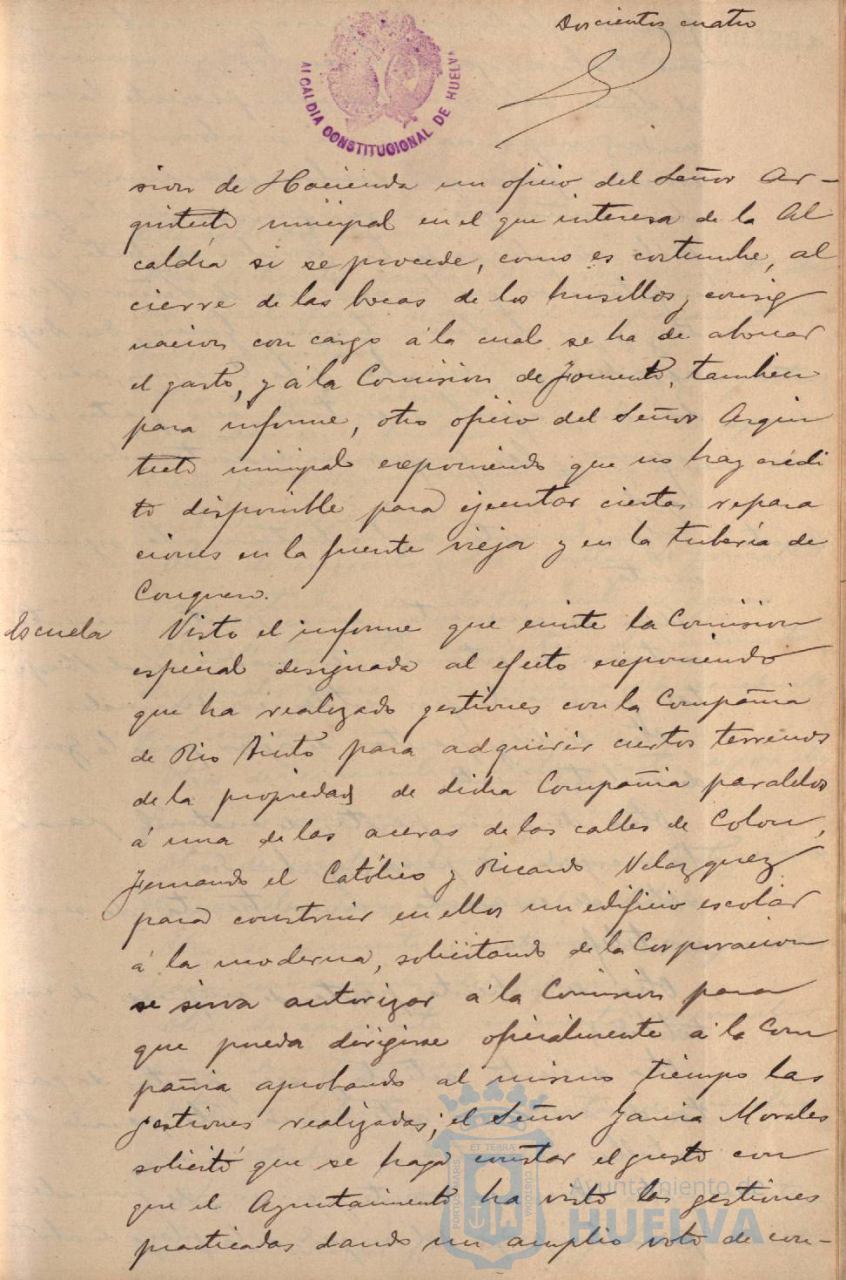 Doscientos cuatro
ALCALDIA CONSTITUCIONAL DE HUELVA
sion de Hacienda un oficio del Señor Ar-
quitecto municipal en el que interesa de la Al
caldía si se procede, como es costumbre, al
cierre de las bocas de los husillos y consig
nacion con cargo á la cual se ha de abonar
el gasto, y á la Comision de Fomento, tambien
para informe, otro oficio del Señor Arqui
tecto municipal exponiendo que no hay crédi
to disponible para ejecutar ciertas repara
ciones en la fuente vieja y en la tubería de
Conquero.
Escuela
Visto el informe que emite la Comision
especial designada al efecto exponiendo
que ha realizado gestiones con la Compañia
de Rio Tinto para adquirir ciertos terrenos
de la propiedad de dicha Compañia paralelos
á una de las aceras de las calles de Colon,
Fernando el Católico y Ricardo Velazquez
para construir en ellos un edificio escolar
á la moderna, solicitando de la Corporacion
se sirva autorizar á la Comision para
que pueda dirigirse oficialmente á la Com
pañia aprobando al mismo tiempo las
gestiones realizadas; el Señor Garcia Morales
solicitó que se haga constar el gusto con
que el Ayuntamiento ha visto las gestiones
practicadas dando un amplio voto de con-
Ayuntamiento de
HUELVA
PORTUS MARIS ET TERRAE CUSTODIA